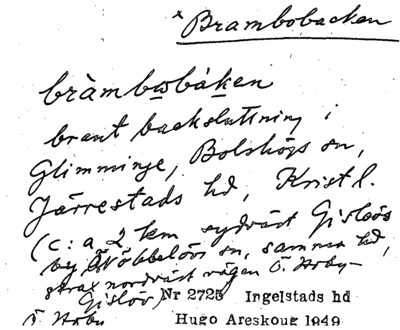 × Brambobacken
bràmbωbáken
brant backsluttning i
Glimminge, Bolshögs sn,
Järrestads hd, Kristl.
(c:a 2 km sydväst Gislövs
by, Ö Nöbbelövs sn, samma hd,
strax nordväst vägen Ö. Hoby-
Gislöv) Nr 2725 Ingelstads hd
Ö. Hoby Hugo Areskoug 1949